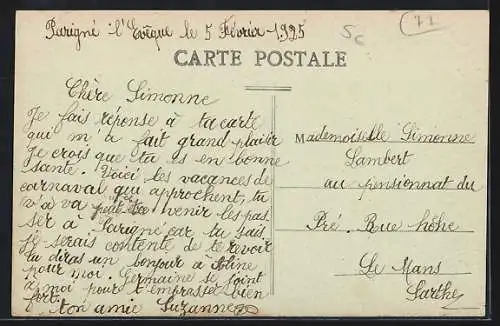 Parigné l'Evêque le 5 Février 1925
5c
71
CARTE POSTALE
Chère Simonne
Je fais réponse à ta carte
qui m'a fait grand plaisir
Je crois que tu es en bonne
santé. Voici les vacances de
carnaval qui approchent, tu
v'a va venir les pas
ser à Parigné car tu sais
je serais contente de te revoir
tu diras un bonjour à Aline
pour moi. Germaine se joint
à moi pour t'emprasser bien
fort.
ton amie Suzanne
Mademoiselle Simonne
Lambert
au pensionnat du
Pré. Rue hôhe
Le Mans
Sarthe